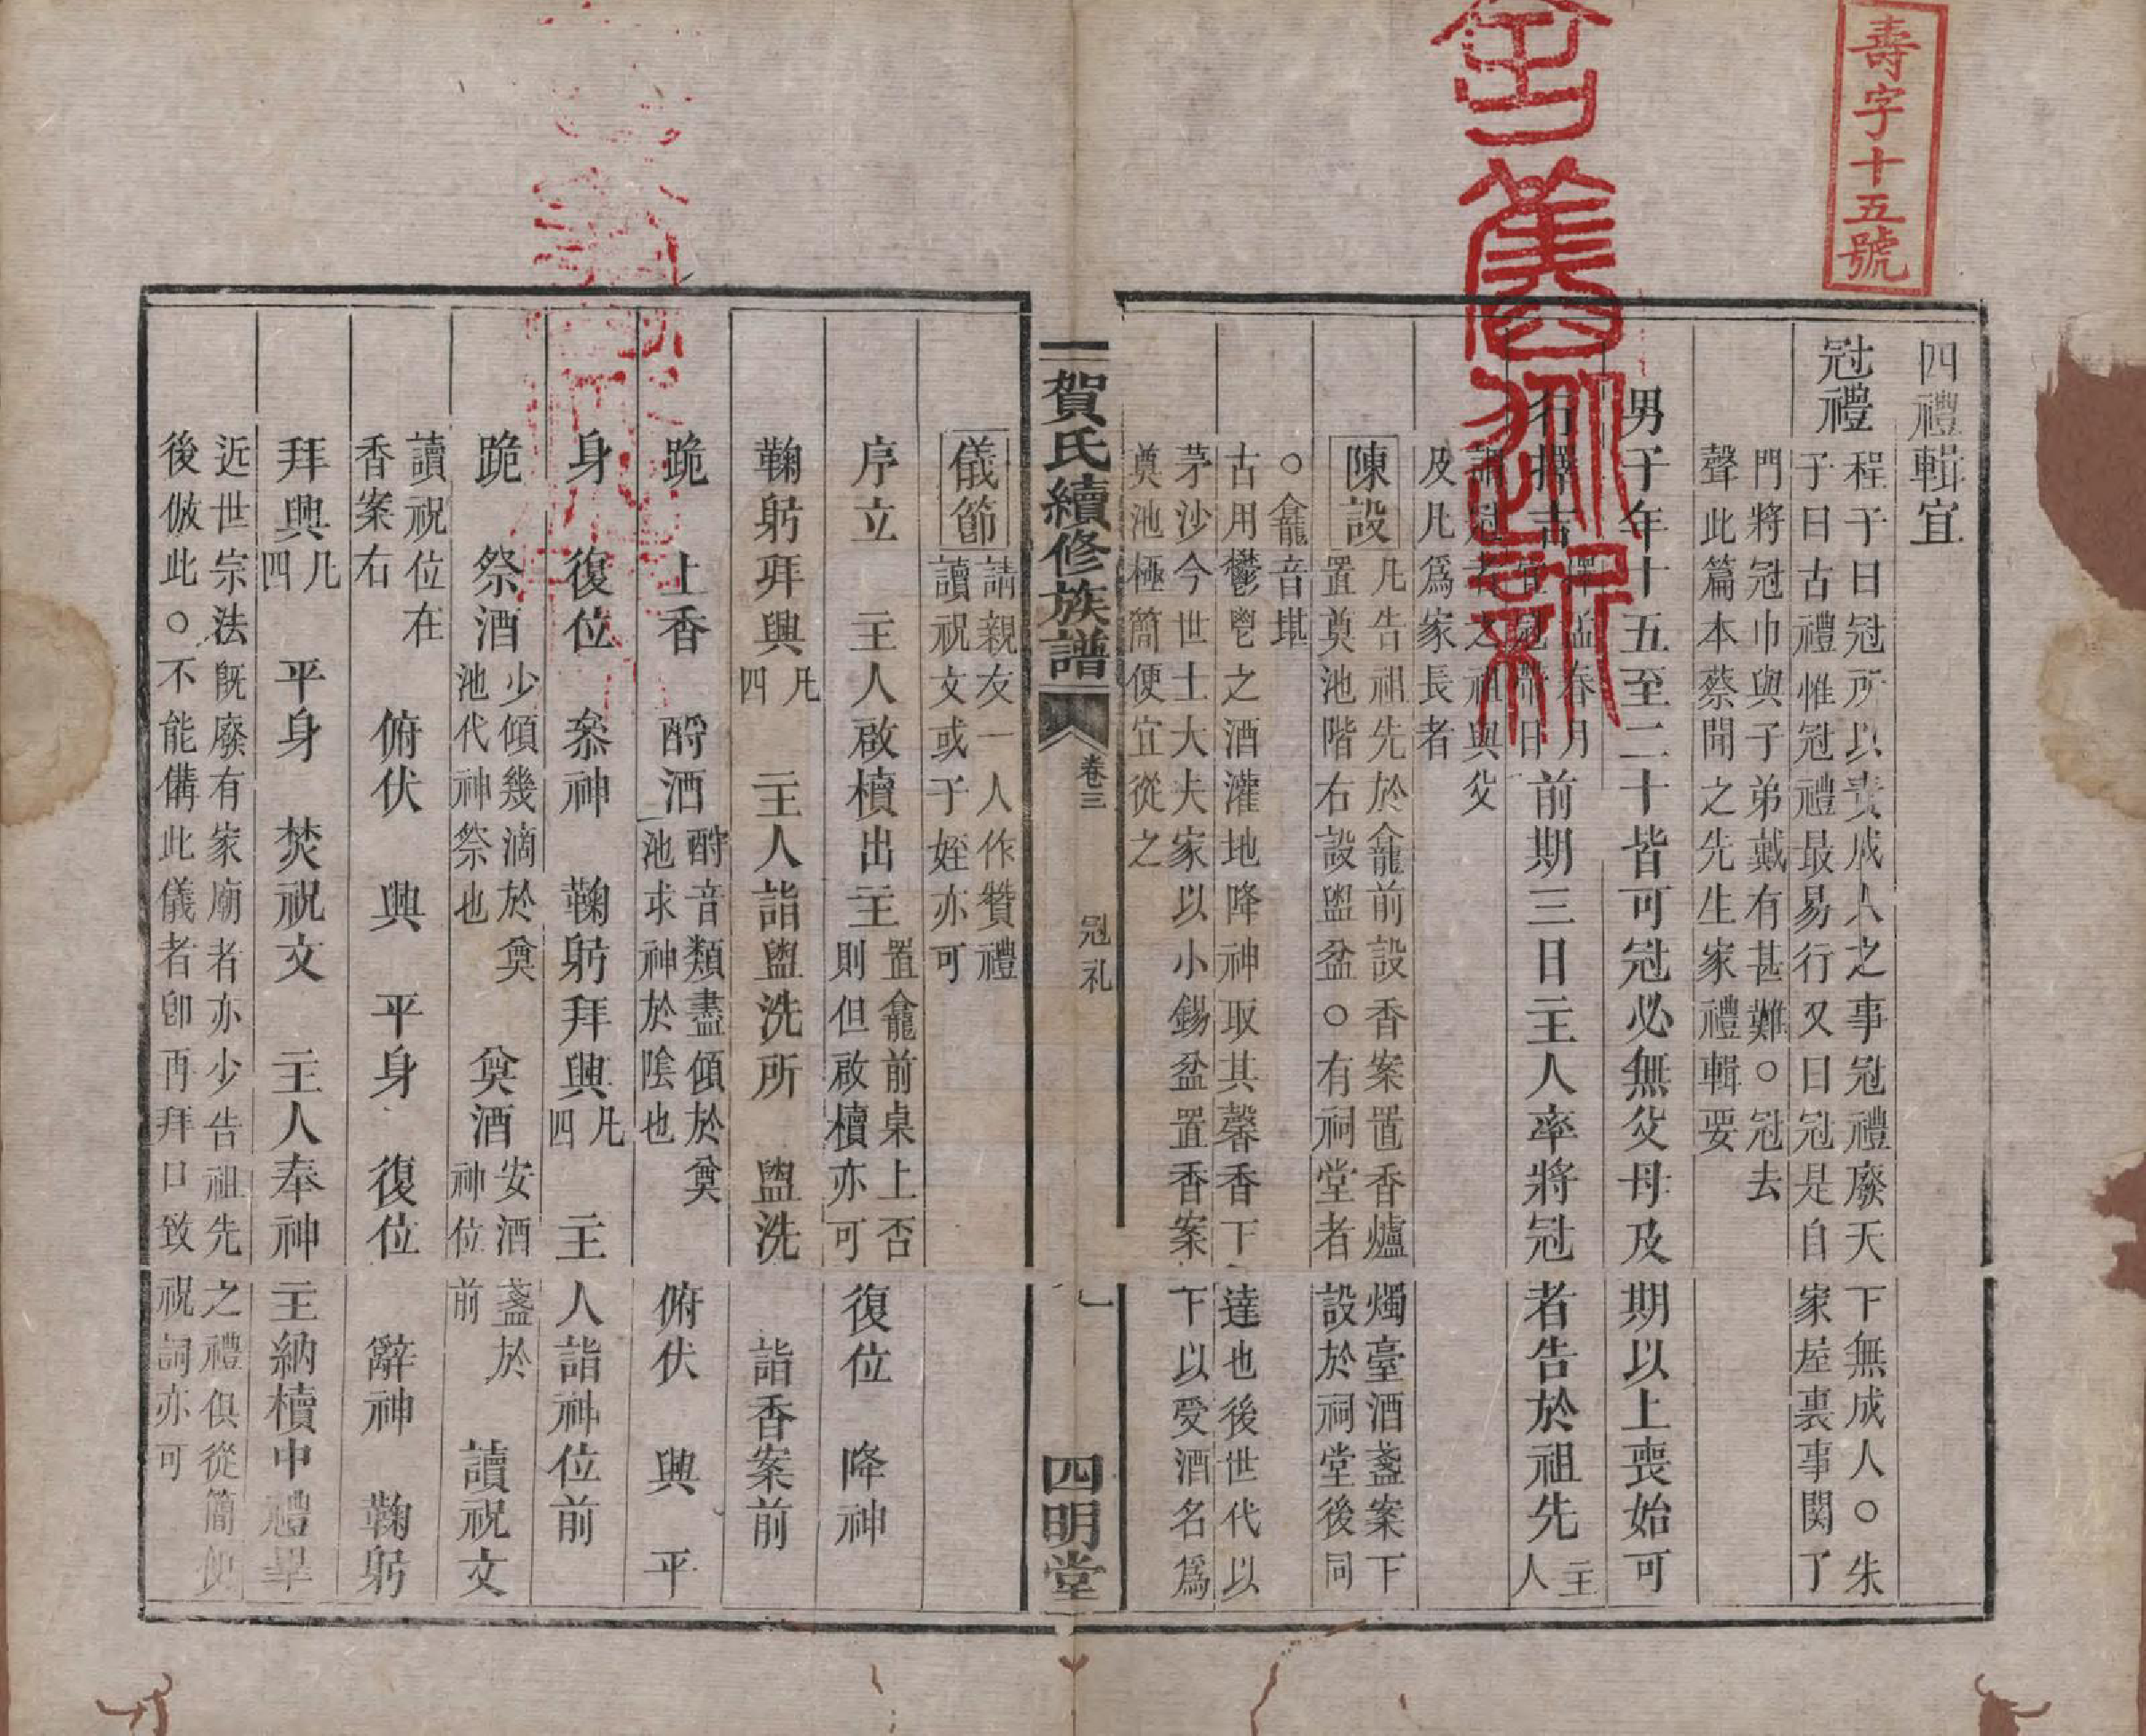 壽字十五號
四禮輯宜
冠禮
程子曰冠所以責成人之事冠禮廢天下無成人○朱
子曰古禮惟冠禮最易行又曰冠是自家屋裏事関了
門將冠巾與子弟戴有甚難○冠去
聲此篇本蔡聞之先生家禮輯要
男子年十五至二十皆可冠必無父母及期以上喪始可
行擇吉
擇孟春月
宜冠帶日
前期三日主人率將冠者告於祖先
主
人
謂冠者之祖與父
及凡爲家長者
陳設
凡告祖先於龕前設香案置香爐燭臺酒盞案下
置奠池階右設盥盆○有祠堂者設於祠堂後同
○龕音堪
古用鬱鬯之酒灌地降神取其馨香下達也後世代以
茅沙今世士大夫家以小錫盆置香案下以受酒名爲
奠池極簡便宜從之
賀氏續修族譜 卷三 冠礼 一 四明堂
儀節
請親友一人作贊禮
讀祝文或子姪亦可
序立 主人啟櫝出主
置龕前桌上否
則但啟櫝亦可
復位 降神
鞠躬拜興
凡
四
主人詣盥洗所 盥洗 詣香案前
跪 上香 酹酒
酹音類盡傾於奠
池求神於陰也
俯伏 興 平
身 復位 叅神 鞠躬拜興
凡
四
主人詣神位前
跪 祭酒
少傾幾滴於奠
池代神祭也
奠酒
安酒盞於
神位前
讀祝文
讀祝位在
香案右
俯伏 興 平身 復位 辭神 鞠躬
拜興
凡
四
平身 焚祝文 主人奉神主納櫝中禮畢
近世宗法旣廢有家廟者亦少告祖先之禮俱從簡便
後倣此○不能備此儀者卽再拜口致祝詞亦可